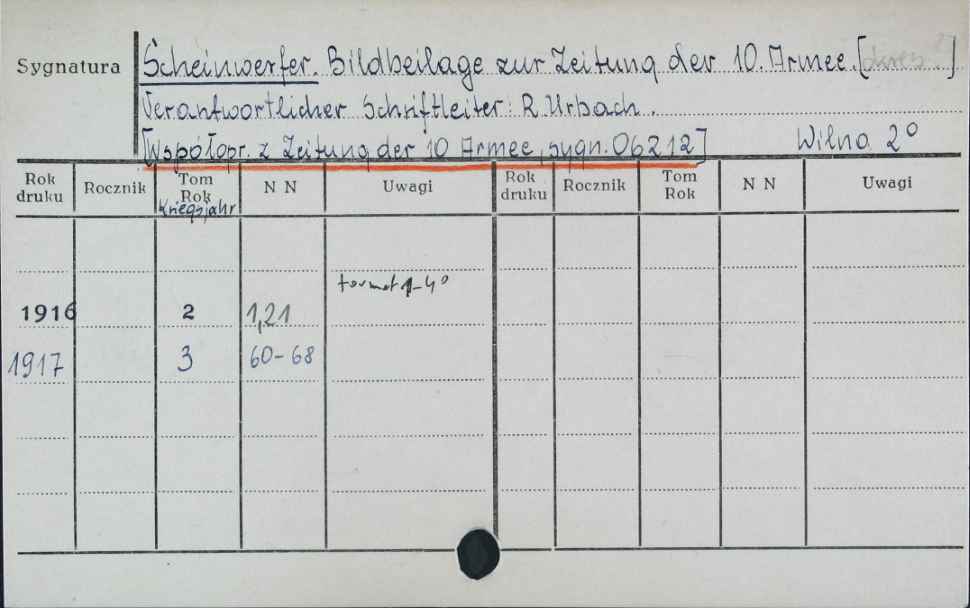 Sygnatura
Scheinwerfer. Bildbeilage zur Zeitung der 10. Armee. [ ]
Verantwortlicher Schriftleiter: R. Urbach.
[Współopr. z Zeitung der 10 Armee, sygn. 06212]
Wilno 2°
Rok druku Rocznik Tom Rok N N Uwagi Rok druku Rocznik Tom Rok N N Uwagi
Kriegsjahr
format 4°
1916 2 1,21
1917 3 60-68